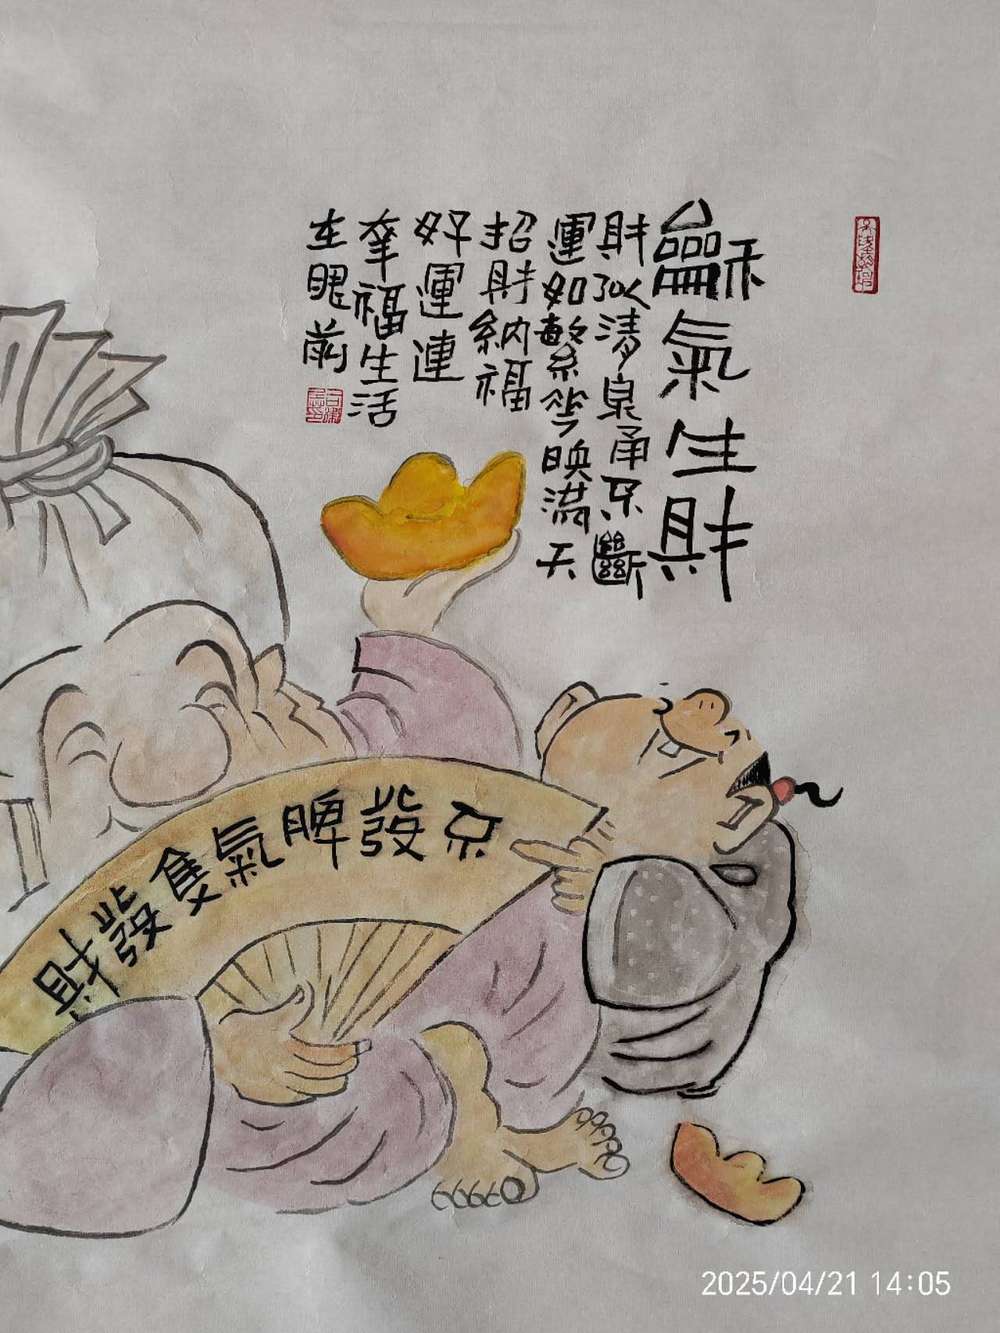 龢氣生財
財似清泉甬不斷
運如繁华映滿天
招財納福
好運連
幸福生活
在眼前
不發脾氣隻發財
2025/04/21 14:05